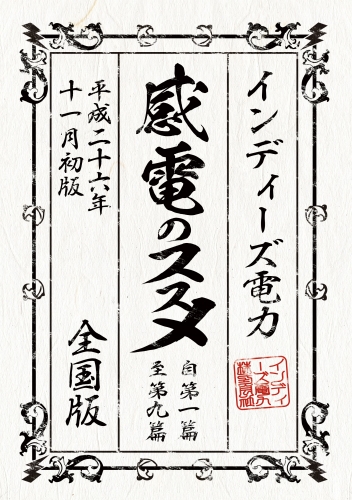 インディーズ電力
インディ
ーズ電力
感電のススメ
自第一篇
至第九篇
平成二十六年
十一月初版
全国版